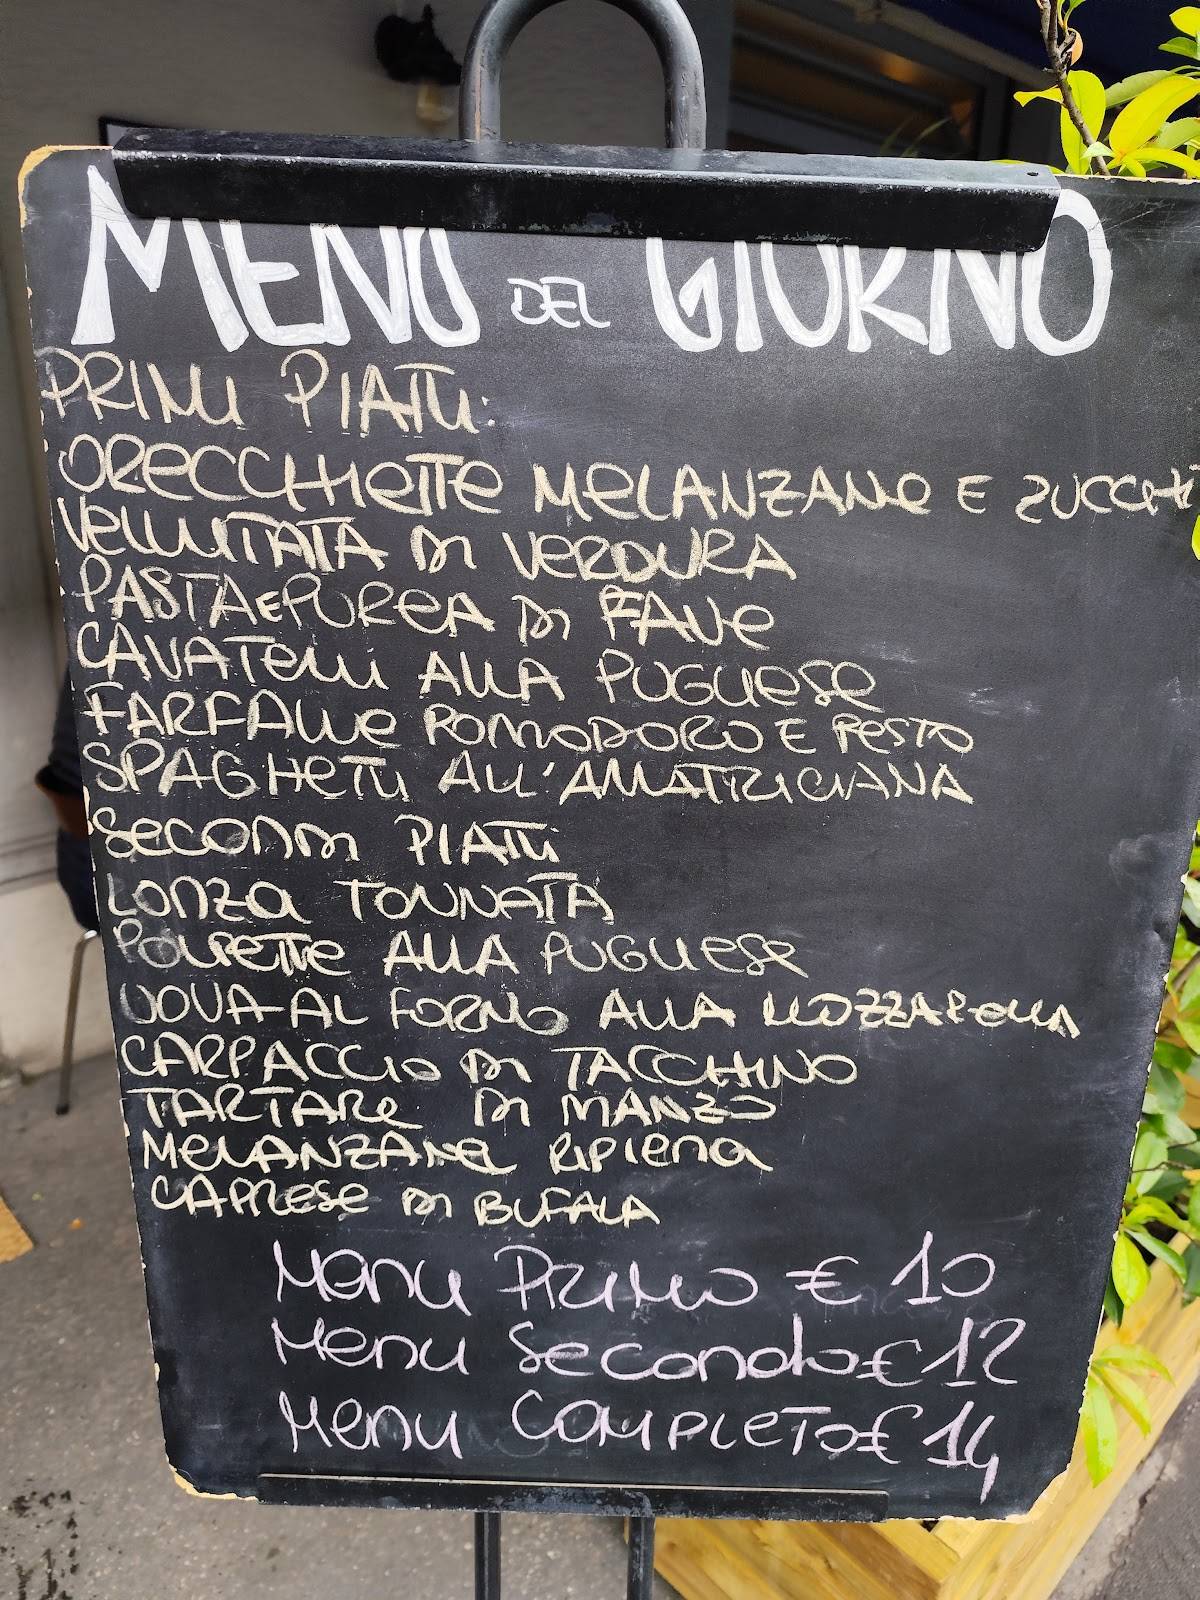 MENU DEL GIORNO
PRIMI PIATTI:
ORECCHIETTE MELANZANE E ZUCCHI
VELLUTATA DI VERDURA
PASTA E PUREA DI FAVE
CAVATELLI ALLA PUGLIESE
FARFALLE POMODORO E PESTO
SPAGHETTI ALL'AMATRICIANA
SECONDI PIATTI
LONZA TONNATA
POLPETTE ALLA PUGLIESE
UOVA AL FORNO ALLA MOZZARELLA
CARPACCIO DI TACCHINO
TARTARE DI MANZO
MELANZANE RIPIENA
CAPRESE DI BUFALA
Menu Primo € 10
Menu Secondo € 12
Menu Completo € 14